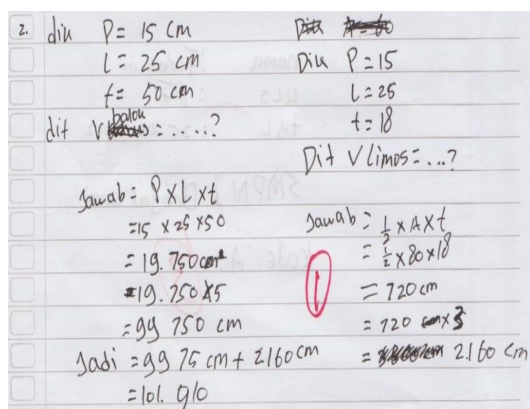 2. diu P = 15 cm
l = 25 cm
t = 50 cm
dit V balok = .....?
Jawab = P x L x t
= 15 x 25 x 50
= 19.750 cm
= 19.750 x 5
= 99 750 cm
Jadi = 99 75 cm + 2160 cm
= 101. 910
Diu P = 15
l = 25
t = 18
Dit V limos = ...?
Jawab = 1/2 x A x t
= 1/2 x 80 x 18
= 720 cm
= 720 x 3
= 2160 cm
1